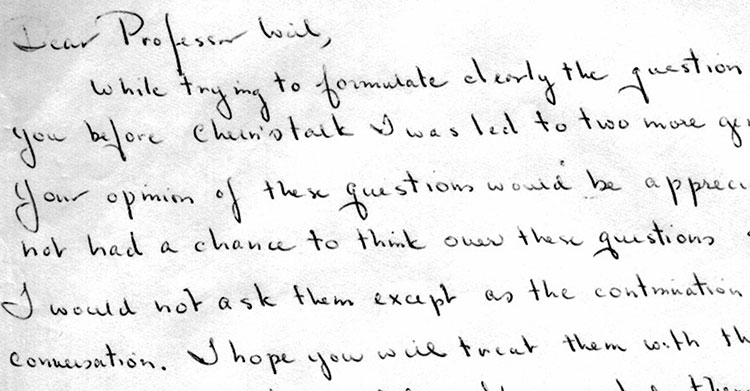 Dear Professor Weil,
While trying to formulate clearly the question
you before Chern's talk I was led to two more
Your opinion of these questions would be
not had a chance to think over these questions
I would not ask them except as the continuation
conversation. I hope you will treat them with